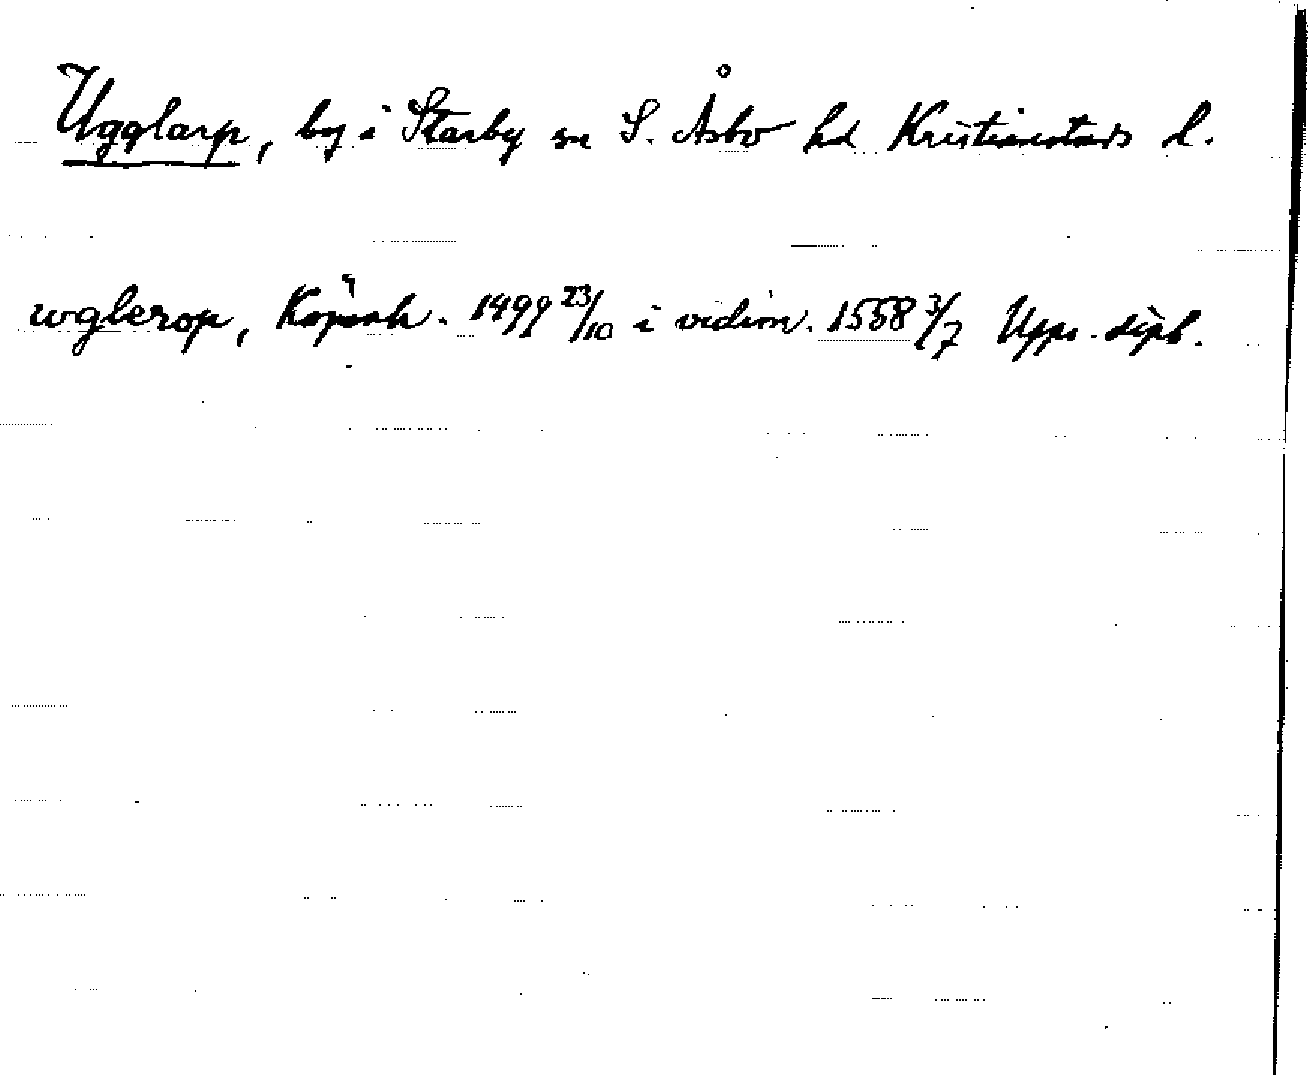 Ugglarp, by i Starby sn S. Åsbo hd Kristianstads l.
wglerop, Köpenh. 1499 23/10 i vidim. 1558 3/7 Upps. dipl.